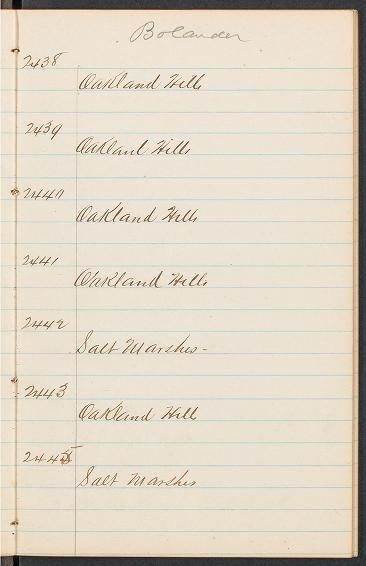 Bolander
2438
Oakland Hills
2439
Oakland Hills
2440
Oakland Hills
2441
Oakland Hills
2442
Salt Marshes-
2443
Oakland Hill
2445
Salt Marshes